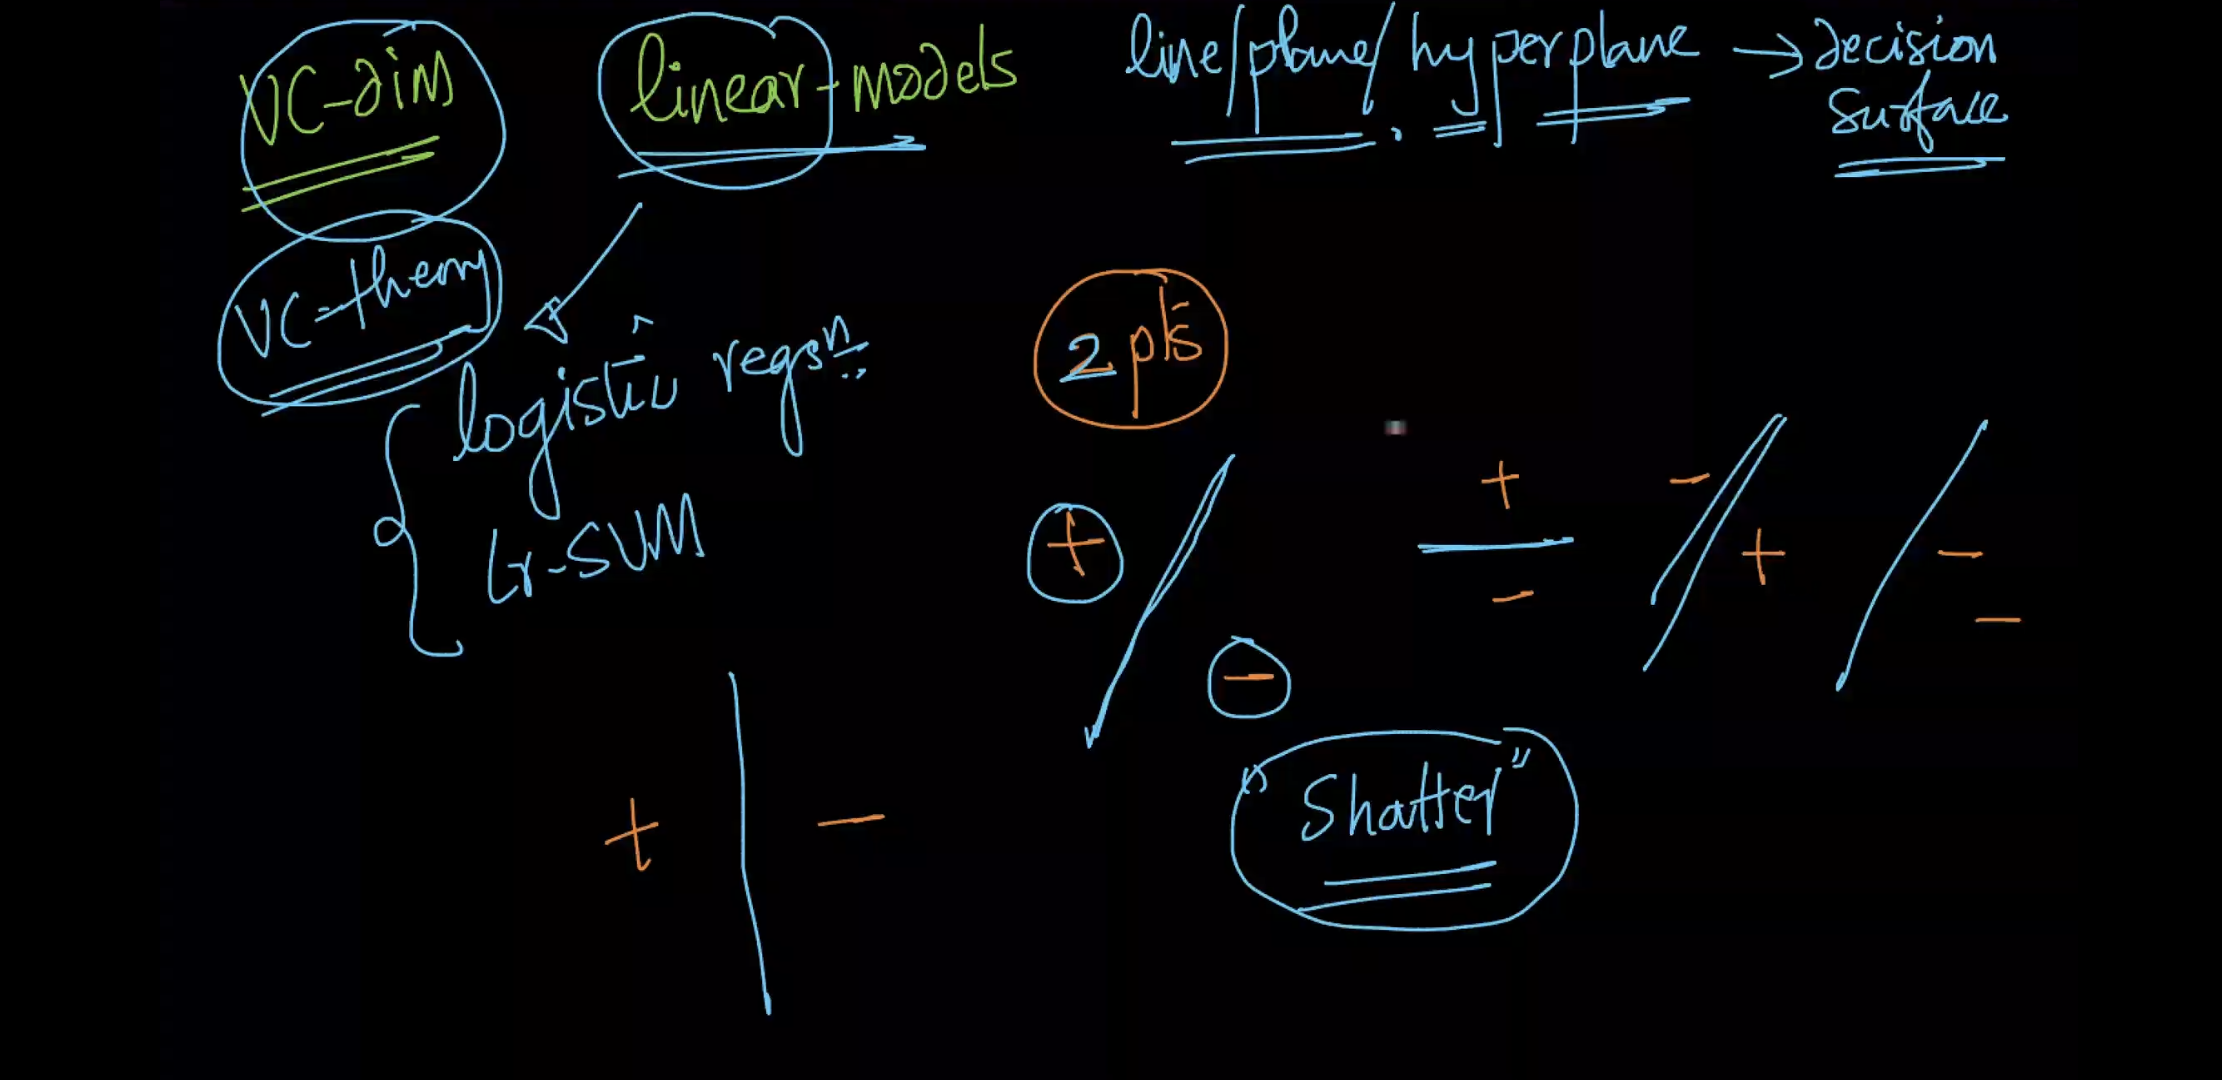 VC-dim linear-models line/plane/hyperplane → decision
surface
VC-theory
logistic regsn
lr-SVM
2 pts
+ -
+
-
- +
- -
+ -
"Shatter"